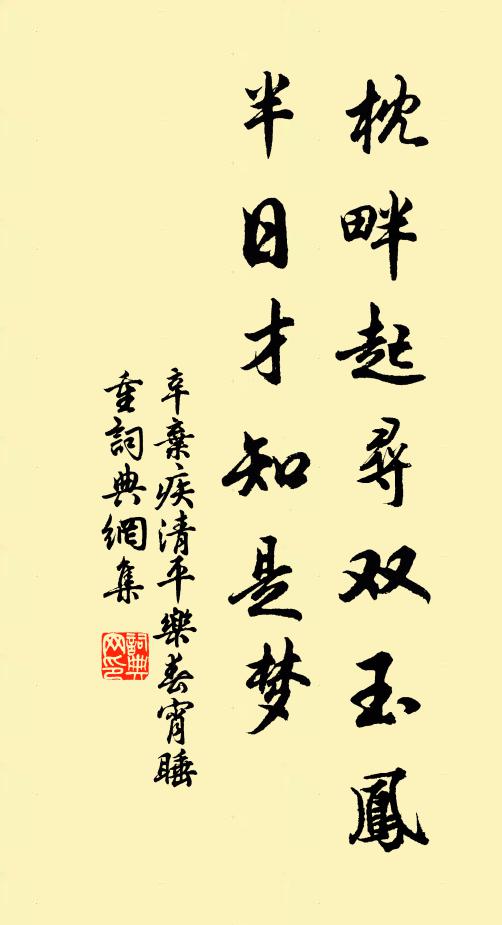 枕畔起尋双玉鳳
半日才知是梦
辛棄疾清平樂春宵睡
重詞典網集
詞典
网印